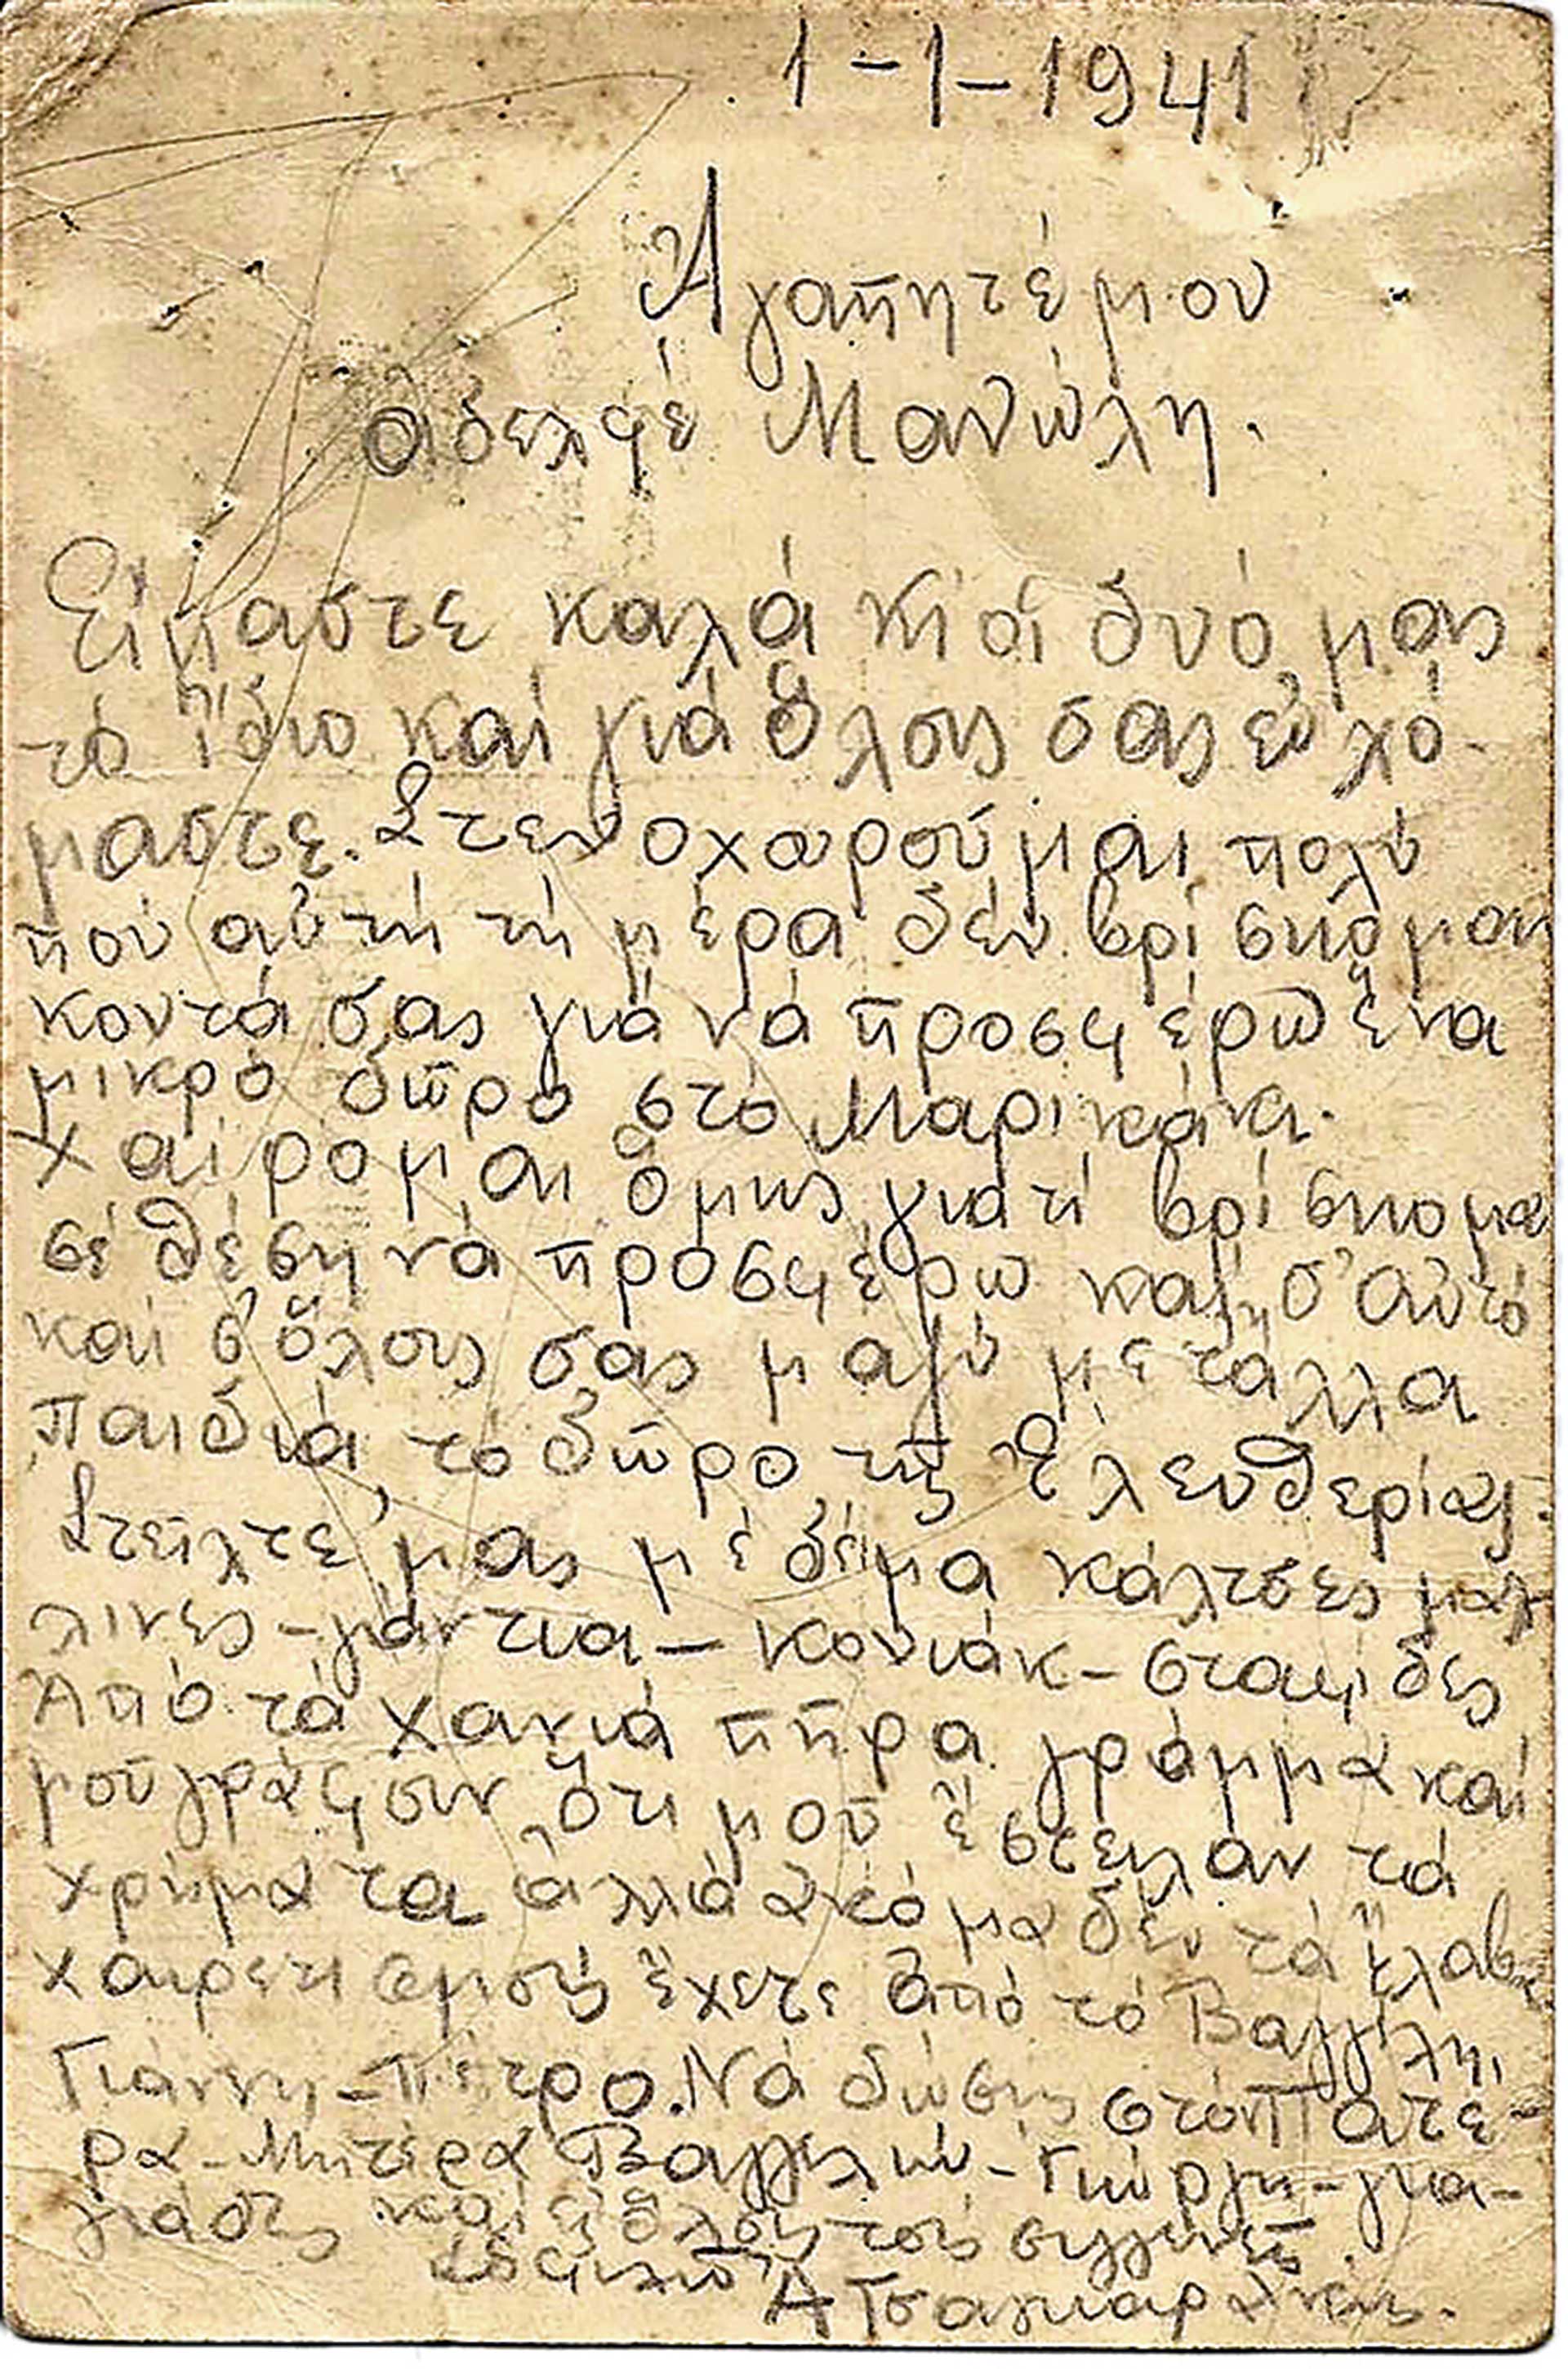 1-1-1941
Ἀγαπητέ μου
ἀδελφέ Μανώλη.
Εἴμαστε καλά κι' οἱ δυό μας
τό ἴδιο καί γιά ὅλους σας εὐχό-
μαστε. Στενοχωρούμαι πολύ
πού αὐτή τή μέρα δέν βρίσκομαι
κοντά σας γιά νά προσφέρω ἕνα
μικρό δῶρο στό Μαρικάκι.
Χαίρομαι ὅμως γιατί βρίσκομαι
σέ θέση νά προσφέρω καί σ' αὐτό
καί σ' ὅλους σας μαζύ μέ τἄλλα
Παιδιά τό δῶρο τῆς Ἐλευθερίας.
Στεῖλτε μας μέ δέμα κάλτσες μάλ
λινες - γάντια - κονιάκ - σταφίδες
Ἀπό τά Χανιά πῆρα γράμμα καί
μοῦ γράφουν ὅτι μοῦ ἔστειλαν τά
χρήματα ἀλλά ἀκόμα δέν τά ἔλαβα
χαιρετισμούς ἔχετε ἀπό τό Βαγγέλη,
Γιάννη - Πέτρο. Νά δώσεις στόν Πατέ-
ρα - Μητέρα Βαγγελιώ - Γιώργη - για-
γιάδες καί σ' ὅλους τούς συγγενεῖς.
Α Τσαγκαράκης.